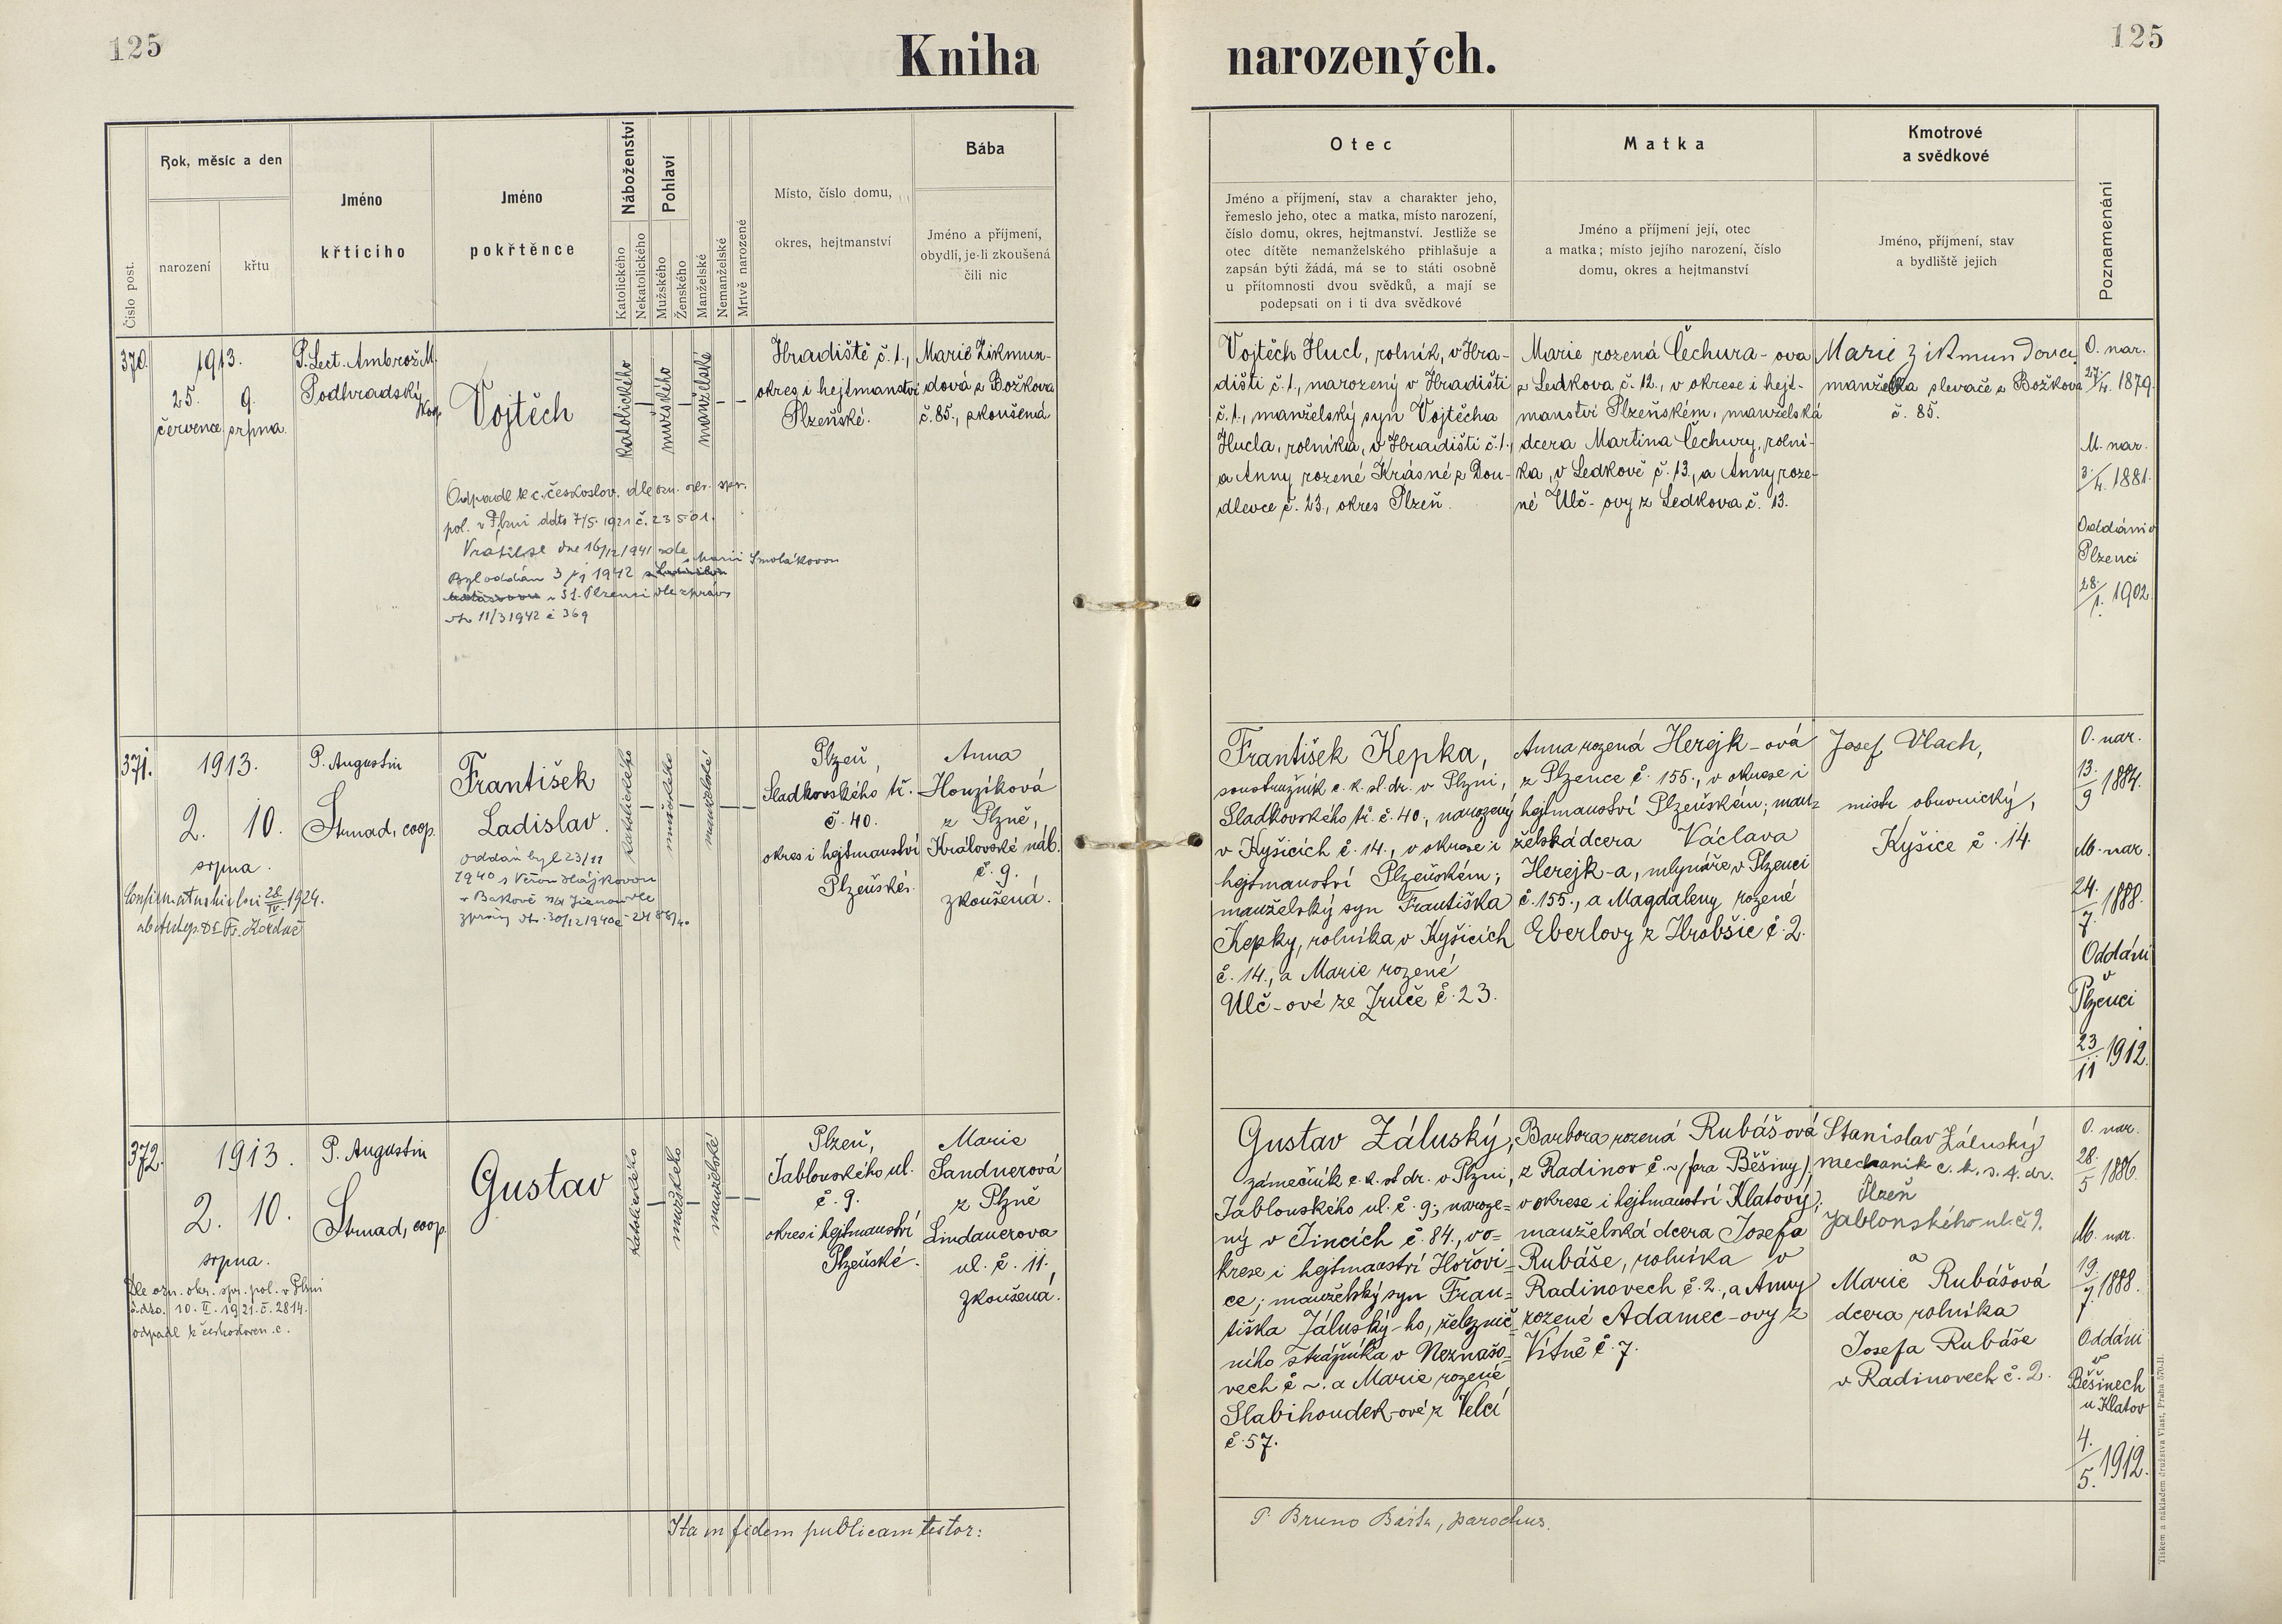 125
Kniha narozených.
125
Číslo post.
Rok, měsíc a den
narození
křtu
Jméno
křticího
Jméno
pokřtěnce
Náboženství
Katolického
Nekatolického
Pohlaví
Mužského
Ženského
Manželské
Nemanželské
Mrtvě narozené
Místo, číslo domu,
okres, hejtmanství
Bába
Jméno a příjmení,
obydlí, je-li zkoušená
čili nic
Otec
Jméno a příjmení, stav a charakter jeho,
řemeslo jeho, otec a matka, místo narození,
číslo domu, okres, hejtmanství. Jestliže se
otec dítěte nemanželského přihlašuje a
zapsán býti žádá, má se to státi osobně
u přítomnosti dvou svědků, a mají se
podepsati on i ti dva svědkové
Matka
Jméno a příjmení její, otec
a matka; místo jejího narození, číslo
domu, okres a hejtmanství
Kmotrové
a svědkové
Jméno, příjmení, stav
a bydliště jejich
Poznamenání
370.
1913.
25. 9.
července srpna.
P. Lect. Ambrož M.
Podhradský
Vojtěch
katolického
mužského
manželské
Hradiště č. 1.,
okres i hejtmanství
Plzeňské.
Marie Zikmun-
dová z Božkova
č. 85., zkoušená
Odpadl k c. českoslov. dle ozn. okr. spr.
pol. v Plzni ddto 7/5. 1921 č. 23501.
Vrátil se dne 16/12 1941 zde
s Marii Smolákovou
Byl oddán 3/1 1942
v St. Plzenci dle zprávy
dto 11/3 1942 č 369
Vojtěch Hucl, rolník, v Hra-
dišti č. 1., narozený v Hradišti
č. 1., manželský syn Vojtěcha
Hucla, rolníka, v Hradišti č. 1.,
a Anny rozené Krásné z Dou-
dlevce č. 23., okres Plzeň.
Marie rozená Čechura-ova
z Ledkova č. 12., v okrese i hejt-
manství Plzeňském, manželská
dcera Martina Čechury, rolní-
ka, v Ledkově č. 13., a Anny roze-
né Ulč-ovy z Ledkova č. 13.
Marie Zikmundová
manželka slevače z Božkova
č. 85.
O. nar.
27./4. 1879.
M. nar.
3./4. 1881.
Oddáni v
Plzenci
28./1. 1902.
371.
1913.
2. 10.
srpna.
Confirmatus hic loci 28/IV. 1924.
ab Aeppo Dr. Fr. Kordač
P. Augustin
Strnad, coop.
František
Ladislav.
oddán byl 23/11
1940 s Věrou Hájkovou
v Bakově n/J Jizerou dle
zprávy dto. 30/12 1940 č. 2488/40
katolického
mužského
manželské
Plzeň,
Sladkovského tř.
č. 40.
okres i hejtmanství
Plzeňské.
Anna
Honzíková
z Plzně,
Královské náb.
č. 9.
zkoušená.
František Kepka,
soustružník c. k. st. dr. v Plzni,
Sladkovského tř. č. 40., narozený
v Kyšicích č. 14., v okrese i
hejtmanství Plzeňském;
manželský syn Františka
Kepky, rolníka v Kyšicích
č. 14., a Marie rozené
Ulč-ové ze Zruče č. 23.
Anna rozená Herejk-ová
z Plzence č. 155., v okrese i
hejtmanství Plzeňském; man-
želská dcera Václava
Herejk-a, mlynáře v Plzenci
č. 155., a Magdaleny rozené
Eberlovy z Hrobšic č. 2.
Josef Vlach,
mistr obuvnický,
Kyšice č. 14.
O. nar.
13./9 1884.
M. nar.
24./7. 1888.
Oddáni
v
Plzenci
23/11 1912.
372.
1913.
2. 10.
srpna.
Dle ozn. okr. spr. pol. v Plzni
z dto. 10. II. 1921. č. 2814.
odpadl k českosloven. c.
P. Augustin
Strnad, coop.
Gustav
katolického
mužského
manželské
Plzeň,
Jablonského ul.
č. 9.
okres i hejtmanství
Plzeňské.
Marie
Sandnerová
z Plzně
Lindauerova
ul. č. 11.,
zkoušená.
Gustav Záluský,
zámečník c. k. st. dr. v Plzni,
Jablonského ul. č. 9; naroze-
ný v Jincích č. 84., v o-
krese i hejtmanství Hořovi-
ce; manželský syn Fran-
tiška Záluský-ho, železnič-
ního strážníka v Neznašo-
vech č ~. a Marie rozené
Slabihoudek-ové z Velcí
č. 57.
Barbora rozená Rubášová
z Radinov č. ~ (fara Běšiny)
v okrese i hejtmanství Klatovy;
manželská dcera Josefa
Rubáše, rolníka v
Radinovech č. 2., a Anny
rozené Adamec-ovy z
Vítně č. 7.
Stanislav Záluský
mechanik c. k. s. d. dr.
Plzeň
Jablonského ul. č. 9.
a
Marie Rubášová
dcera rolníka
Josefa Rubáše
v Radinovech č. 2.
O. nar.
28./5 1886.
M. nar.
19./7. 1888.
Oddáni
v
Běšinech
u Klatov
4./5. 1912.
Ita in fidem publicam testor:
P. Bruno Bárta, parochus.
Tiskem a nákladem družstva Vlast, Praha 570-II.